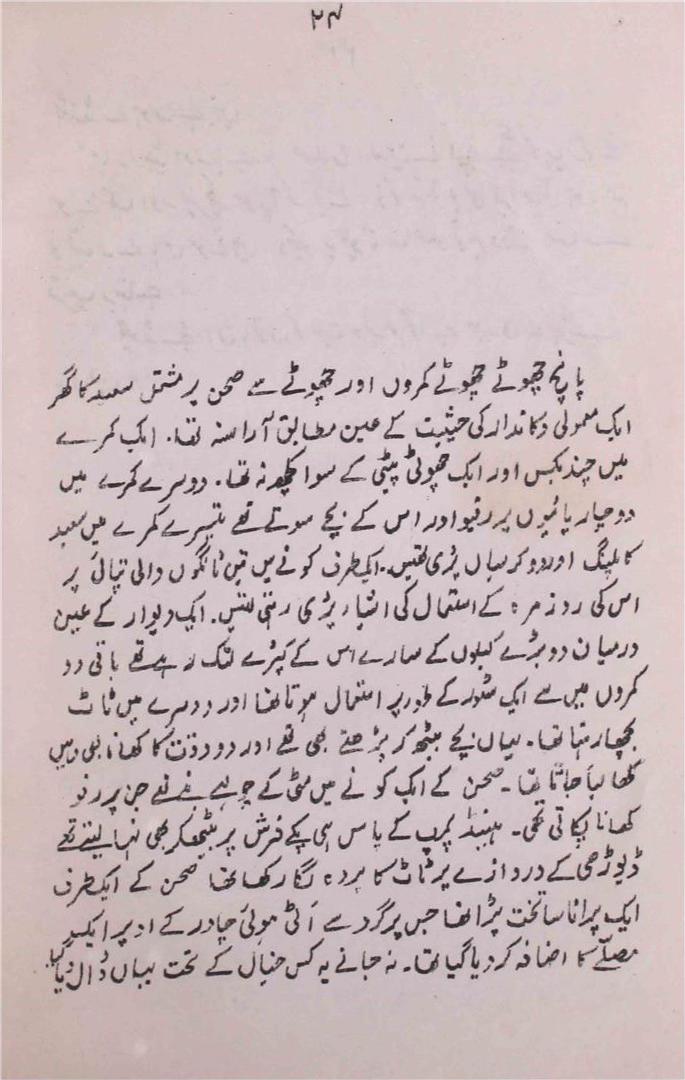 ۲۴
پانچ چھوٹے چھوٹے کمروں اور چھوٹے سے صحن پر مشتمل سعید کا گھر
ایک معمولی دکاندار کی حیثیت کے عین مطابق آراستہ تھا۔ ایک کمرے
میں چند بکس اور ایک چھوٹی پیٹی کے سوا کچھ نہ تھا۔ دوسرے کمرے میں
دو چارپائیوں پر رفیو اور اس کے بچے سوتے تھے تیسرے کمرے میں سعید
کا پلنگ اور دو کرسیاں پڑی تھیں۔ ایک طرف کونے میں تین ٹانگوں والی تپائی پر
اس کی روز مرہ کے استعمال کی اشیاء پڑی رہتی تھیں۔ ایک دیوار کے عین
درمیان دو بڑے کیلوں کے سہارے اس کے کپڑے لٹک رہے تھے باقی دو
کمروں میں سے ایک سٹور کے طور پر استعمال ہوتا تھا اور دوسرے میں ٹاٹ
بچھا رہتا تھا۔ یہاں بچے بیٹھ کر پڑھتے بھی تھے اور دو وقت کا کھانا بھی وہیں
کھا لیا جاتا تھا۔ صحن کے ایک کونے میں مٹی کے چولہے بنے تھے جن پر رفو
کھانا پکاتی تھی۔ ہینڈ پمپ کے پاس ہی پکے فرش پر بیٹھ کر بھی نہا لیتے تھے
ڈیوڑھی کے دروازے پر ٹاٹ کا پردہ لگا رکھا تھا صحن کے ایک طرف
ایک پرانا سا تخت پڑا تھا جس پر گرد سے اَٹی ہوئی چادر کے اوپر ایک
مصلّے کا اضافہ کر دیا گیا تھا۔ نہ جانے یہ کس خیال کے تحت یہاں ڈال دیا گیا